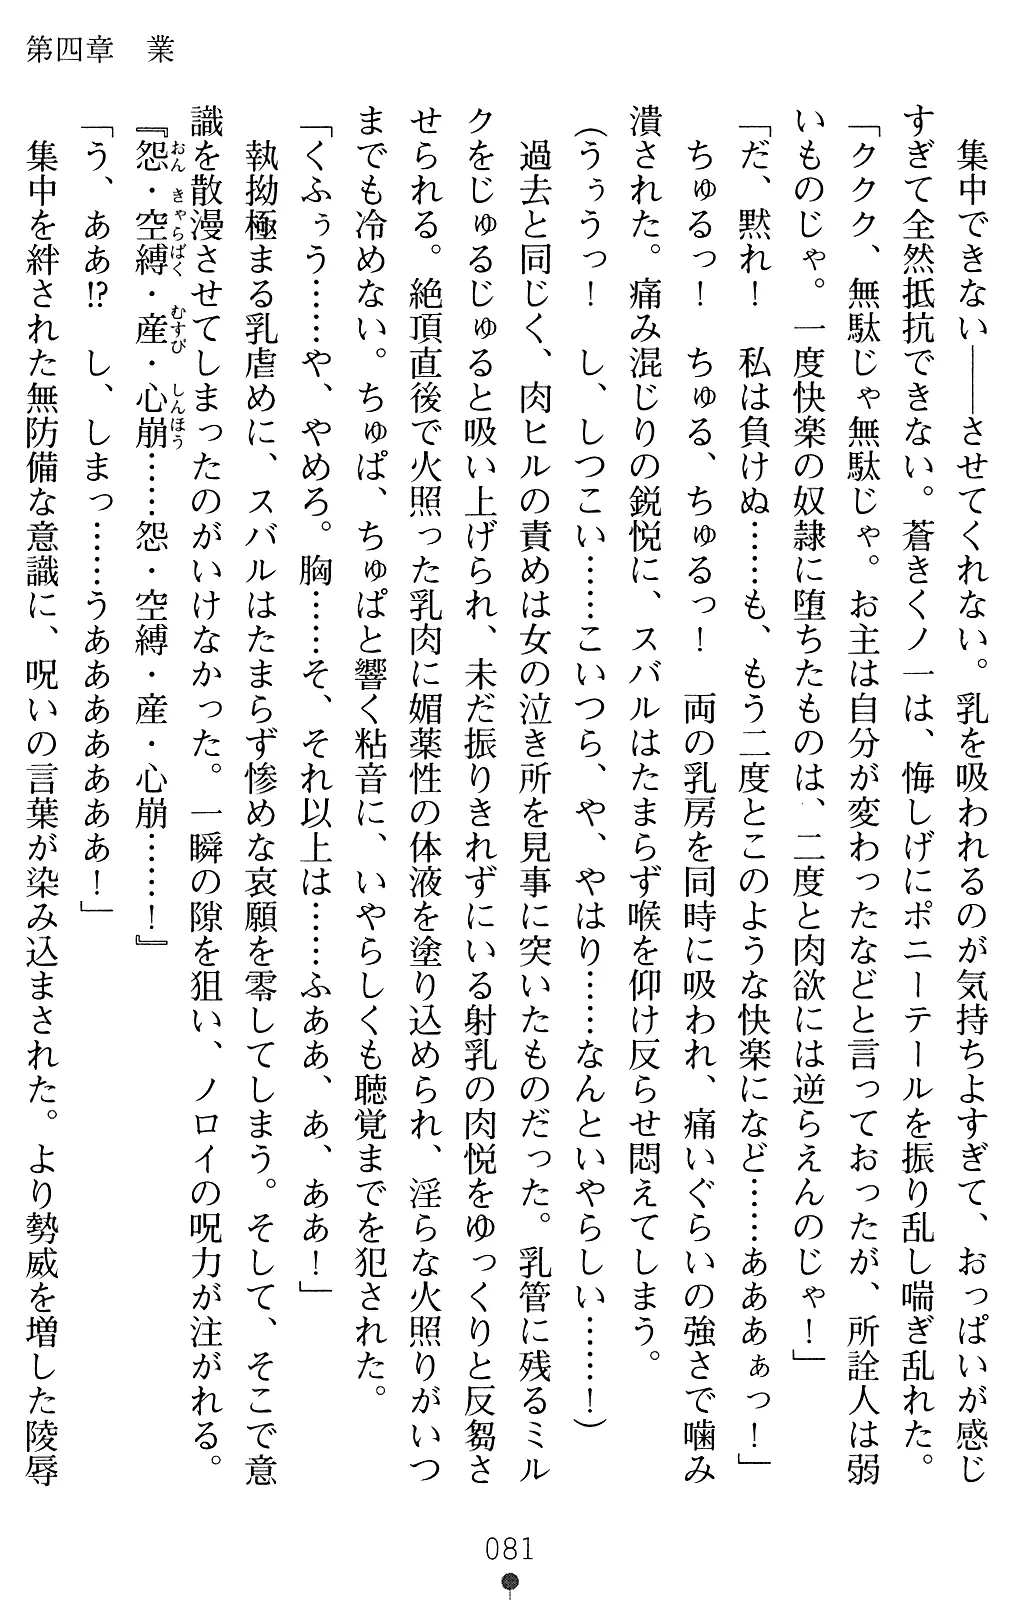 第四章　業
　集中できない――させてくれない。乳を吸われるのが気持ちよすぎて、おっぱいが感じ
すぎて全然抵抗できない。蒼きくノ一は、悔しげにポニーテールを振り乱し喘ぎ乱れた。
「ククク、無駄じゃ無駄じゃ。お主は自分が変わったなどと言っておったが、所詮人は弱
いものじゃ。一度快楽の奴隷に堕ちたものは、二度と肉欲には逆らえんのじゃ！」
「だ、黙れ！　私は負けぬ……も、もう二度とこのような快楽になど……あああぁっ！」
　ちゅるっ！　ちゅる、ちゅるっ！　両の乳房を同時に吸われ、痛いぐらいの強さで噛み
潰された。痛み混じりの鋭悦に、スバルはたまらず喉を仰け反らせ悶えてしまう。
（うぅうっ！　し、しつこい……こいつら、や、やはり……なんといやらしい……！）
　過去と同じく、肉ヒルの責めは女の泣き所を見事に突いたものだった。乳管に残るミル
クをじゅるじゅると吸い上げられ、未だ振りきれずにいる射乳の肉悦をゆっくりと反芻さ
せられる。絶頂直後で火照った乳肉に媚薬性の体液を塗り込められ、淫らな火照りがいつ
までも冷めない。ちゅぱ、ちゅぱと響く粘音に、いやらしくも聴覚までを犯された。
「くふぅう……や、やめろ。胸……そ、それ以上は……ふああ、あ、ああ！」
　執拗極まる乳虐めに、スバルはたまらず惨めな哀願を零してしまう。そして、そこで意
識を散漫させてしまったのがいけなかった。一瞬の隙を狙い、ノロイの呪力が注がれる。
『怨・空縛・産・心崩……怨・空縛・産・心崩……！』
おん　きゃらばく　むすび　しんほう
「う、ああ!?　し、しまっ……うああああああ！」
　集中を絆された無防備な意識に、呪いの言葉が染み込まされた。より勢威を増した陵辱
081